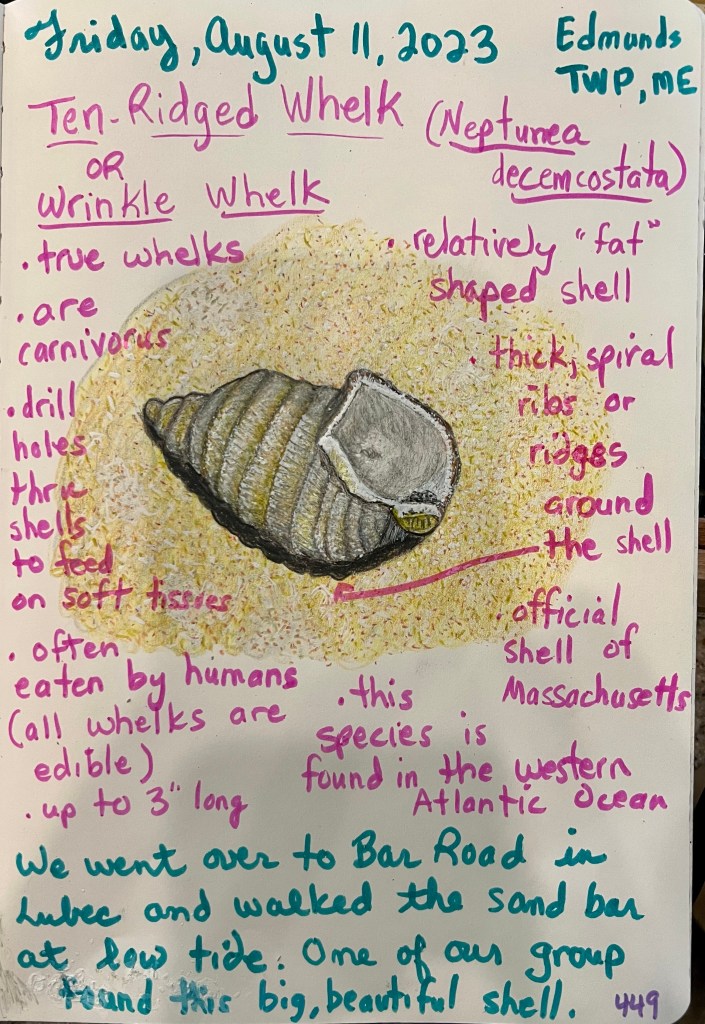 Friday, August 11, 2023
Edmunds
TWP, ME
Ten-Ridged Whelk (Neptunea
decemcostata)
OR
Wrinkle Whelk
• true whelks
• are
carnivorus
• drill
holes
thru
shells
to feed
on soft tissues
• often
eaten by humans
(all whelks are
edible)
• up to 3" long
• relatively "fat"
shaped shell
• thick, spiral
ribs or
ridges
around
the shell
• official
shell of
Massachusetts
• this
species is
found in the western
Atlantic Ocean
We went over to Bar Road in
Lubec and walked the sand bar
at low tide. One of our group
found this big, beautiful shell.
449